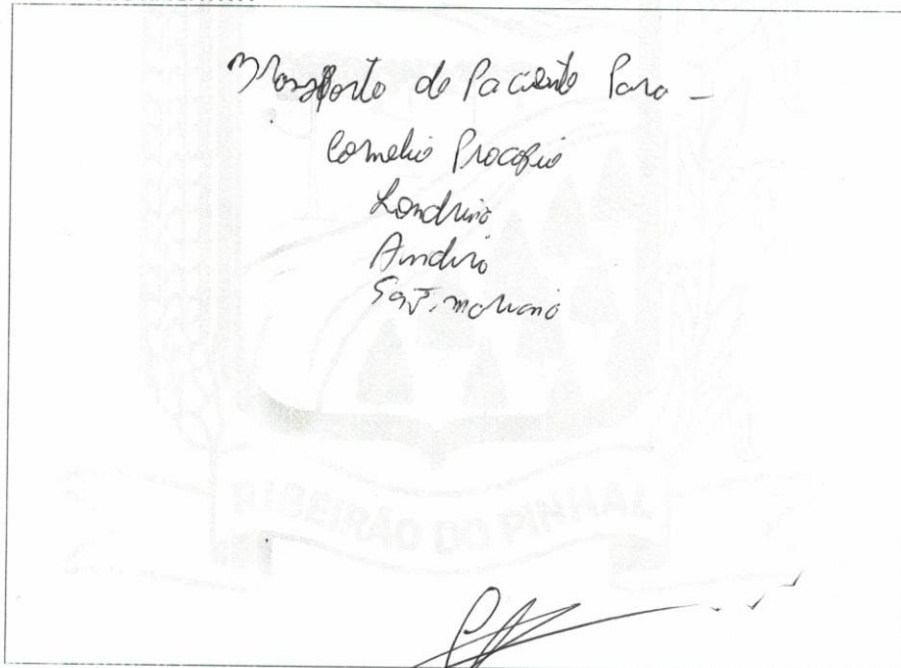 Transporte de Paciente Para -
Cornelio Procopio
Londrina
Andira
Sta. mariana
RIBEIRÃO DO PINHAL